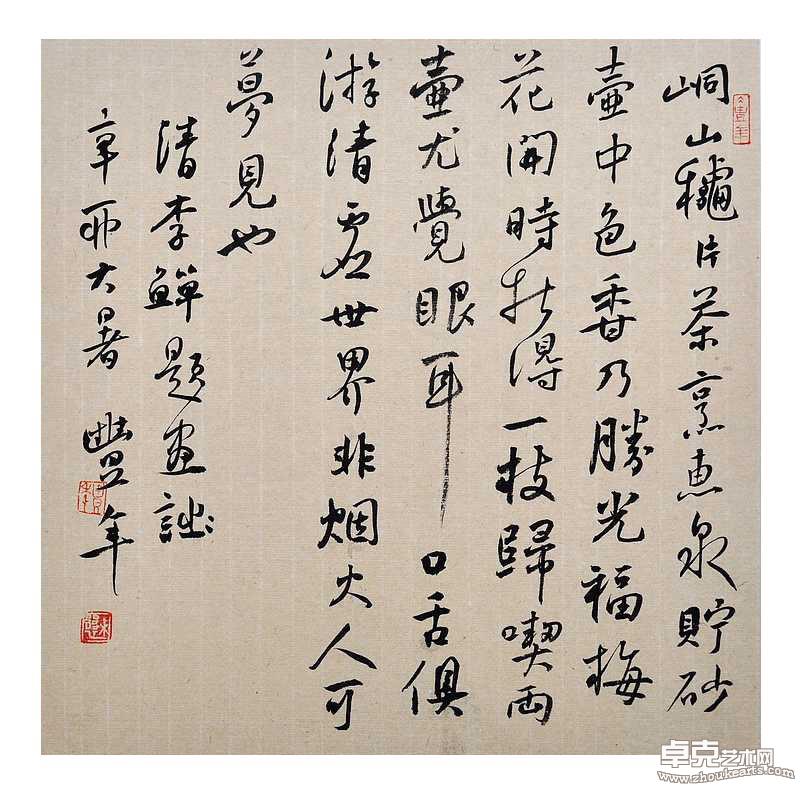 峒山穐片茶烹惠泉貯砂
壺中色香乃勝光福梅
花開時折得一枝歸喫両
壺尤覺眼耳口舌俱
游清虛世界非烟火人可
夢見也
清李鱓題畫
辛卯大暑 豐年
卓克艺术网
www.zhoukearts.com